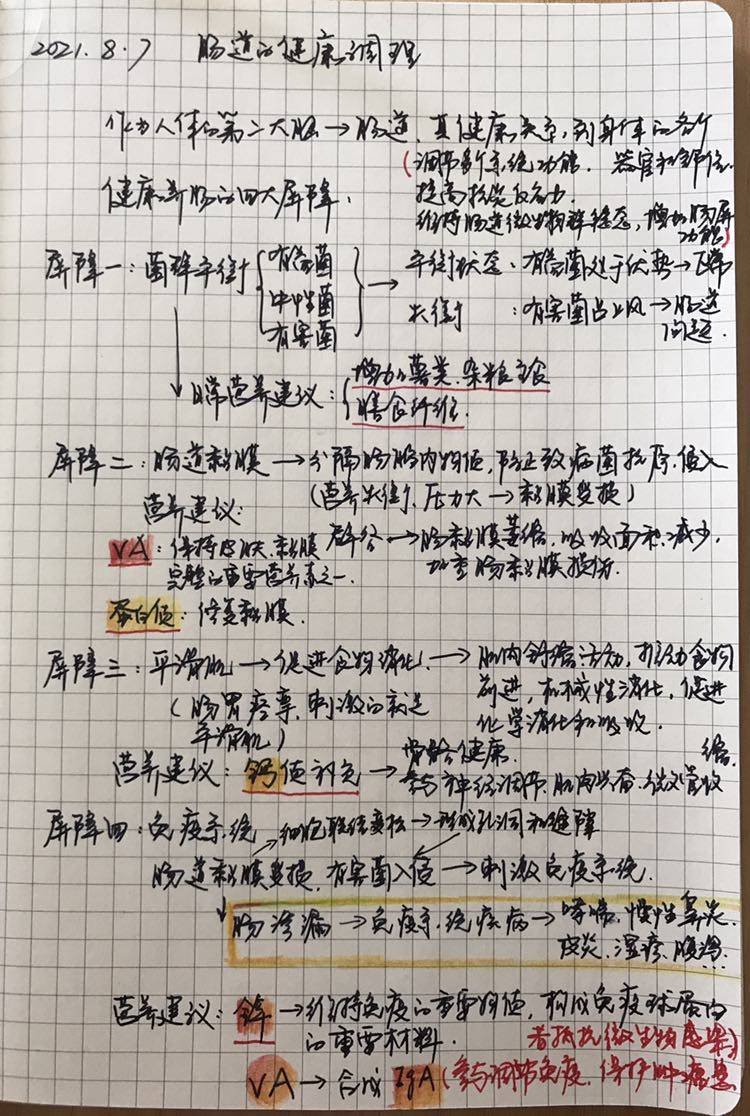 2021.8.7 肠道的健康调理
作为人体的第二大脑→肠道,其健康关系到身体的各个
(调节多个系统功能. 器官和部位.
健康养肠的四大屏障. 提高抗炎反应力.
维持肠道微生物群稳态,增加肠屏
功能)
屏障一:菌群平衡 {有益菌 中性菌 有害菌} → 平衡状态:有益菌处于优势→正常
失衡 :有害菌占上风→肠道
问题.
↓日常营养建议:{增加薯类、杂粮主食
膳食纤维.
屏障二:肠道黏膜→分隔肠腔内物质,防止致病菌抗原侵入
营养建议: (营养失衡、压力大→黏膜受损)
VA:保持皮肤、黏膜 →肠黏膜萎缩,吸收面积减少,
完整的重要营养素之一. 加重肠黏膜损伤.
蛋白质:修复黏膜.
屏障三:平滑肌→促进食物消化.→肌肉舒缩活动,推动食物
(肠胃疼痛,刺激的就是 前进,机械性消化,促进
平滑肌) 化学消化和吸收.
骨骼健康. 缩.
营养建议:钙质补充→参与神经调节、肌肉兴奋、微血管收
屏障四:免疫系统 细胞联结变松→形成孔洞和缝隙
肠道黏膜受损,有害菌入侵→刺激免疫系统.
↓肠渗漏→免疫系统疾病→哮喘、慢性鼻炎、
皮炎、湿疹、腹泻...
营养建议:锌→维持免疫的重要物质,构成免疫球蛋白
的重要材料. 着抵抗微生物感染)
VA→合成IgA(参与调节免疫、保护肿瘤患